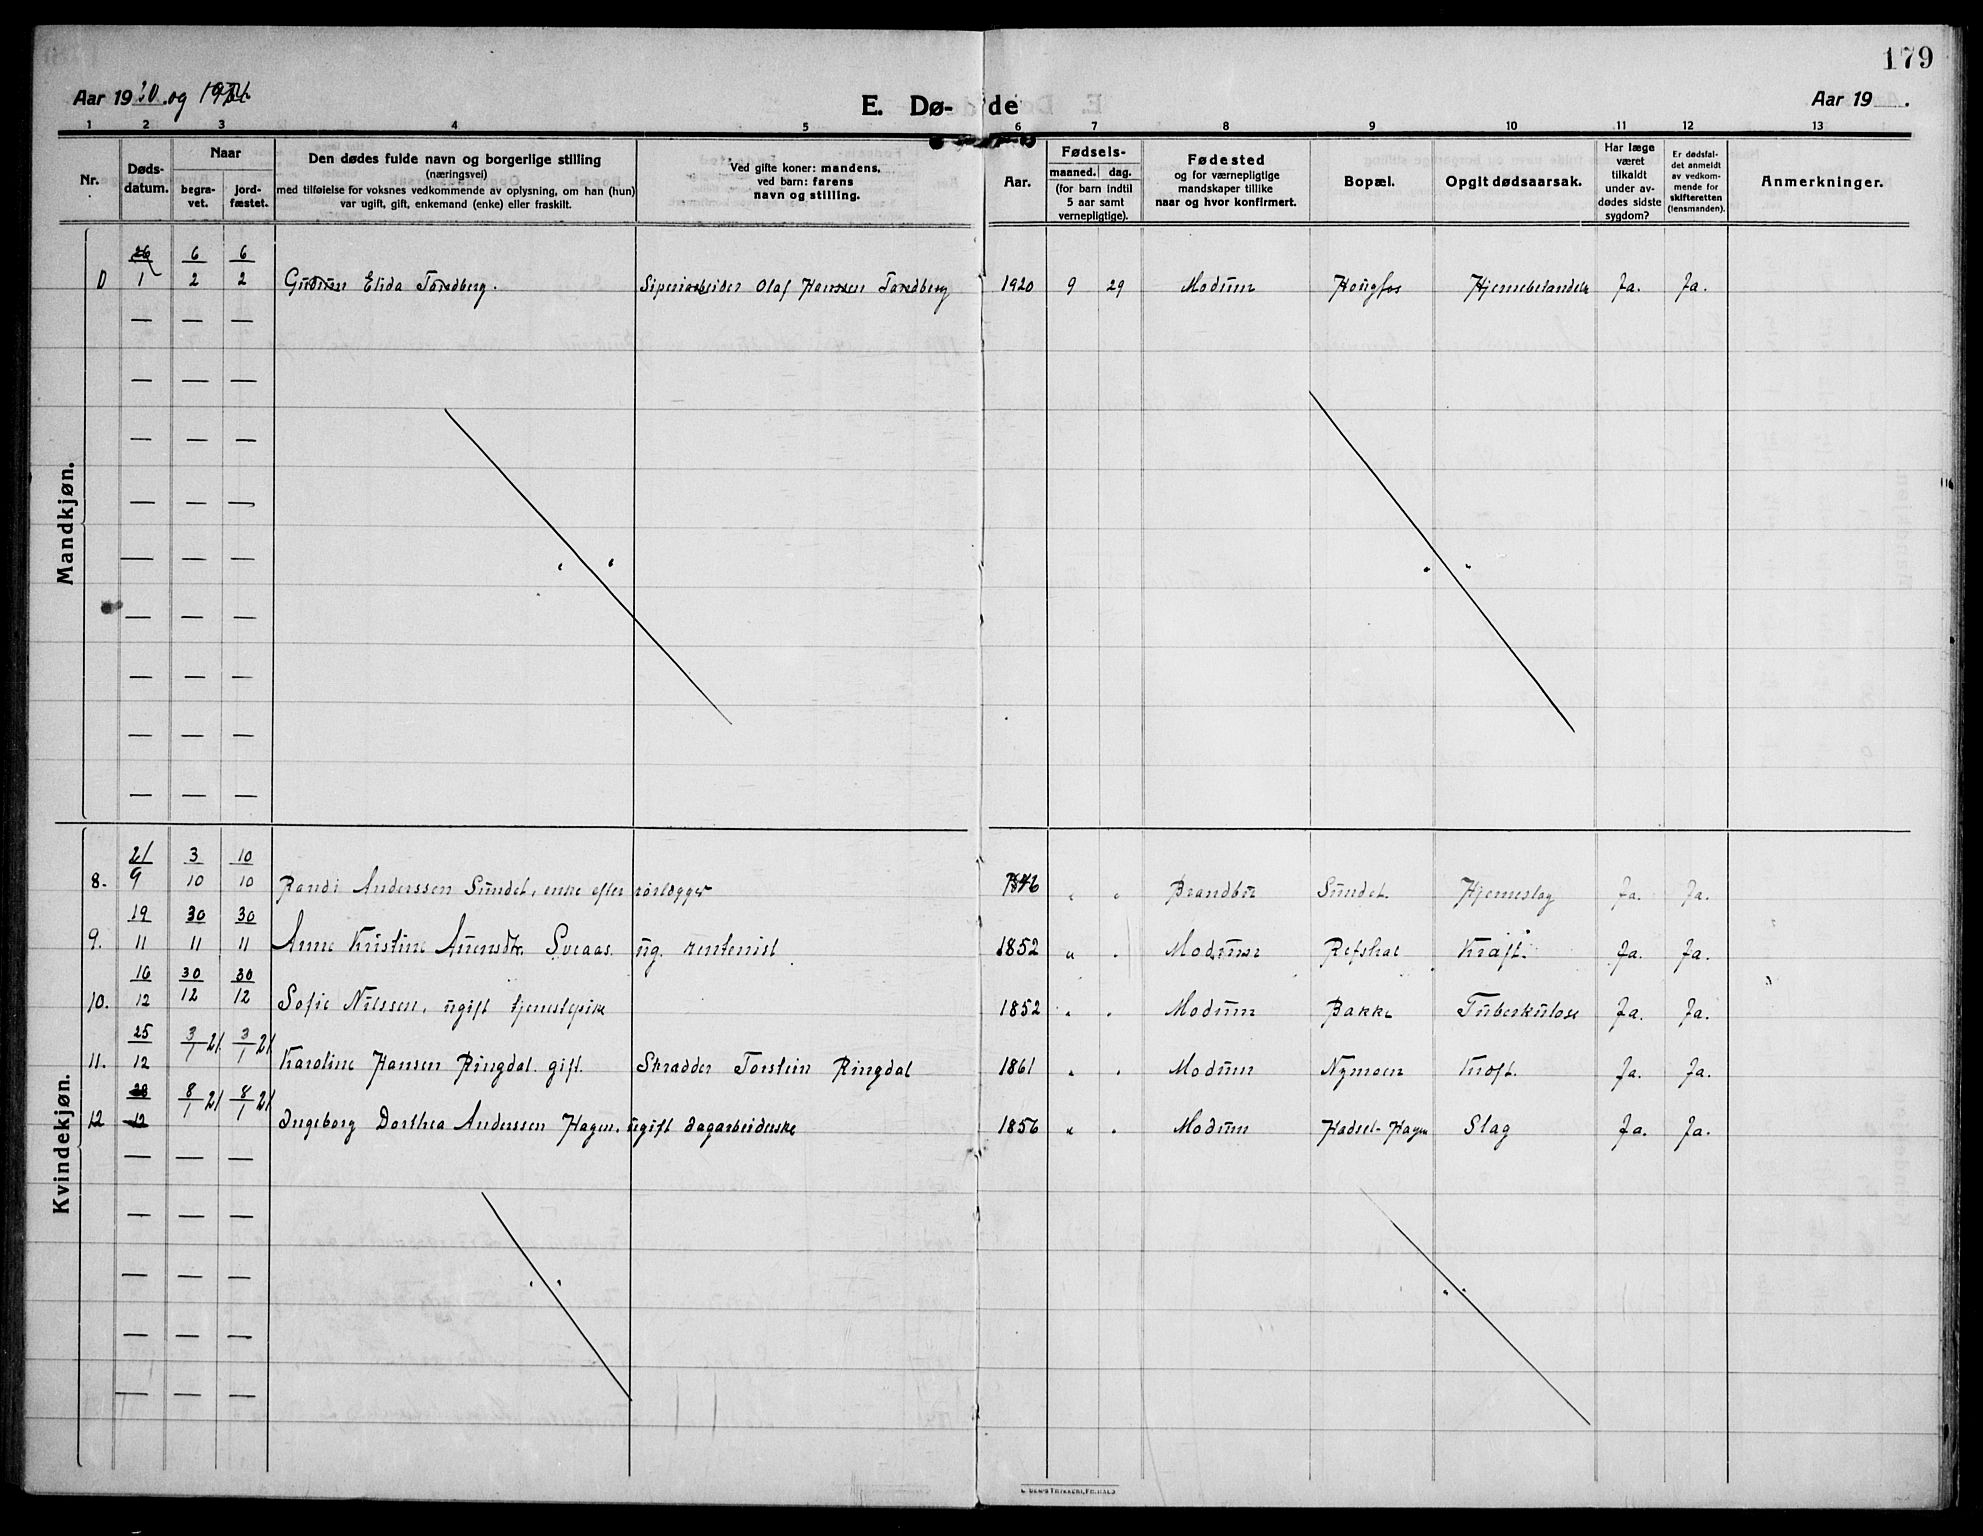 179
Aar 1920 og 1921
E. Dø-de
Aar 19 .
1 2 3 4 5 6 7 8 9 10 11 12 13
Nr.
Døds-
datum.
Naar
begra-
vet.
jord-
fæstet.
Den dødes fulde navn og borgerlige stilling
(næringsvei)
med tilføielse for voksnes vedkommende av oplysning, om han (hun)
var ugift, gift, enkemand (enke) eller fraskilt.
Ved gifte koner: mandens,
ved barn: farens
navn og stilling.
Aar.
Fødsels-
maaned. dag.
(for barn indtil
5 aar samt
vernepligtige).
Fødested
og for værnepligtige
mandskaper tillike
naar og hvor konfirmert.
Bopæl.
Opgit dødsaarsak.
Har læge
været
tilkaldt
under av-
dødes sidste
sygdom?
Er dødsfal-
det anmeldt
av vedkom-
mende for
skifteretten
(lensmanden).
Anmerkninger.
Mandkjøn.
26/1 6/2 6/2 Gudrun Elida Tordberg. Olaf Hanssen Tordberg 1920 9 29 Modum Hougfos Ja. Ja.
Kvindekjøn.
8. 21/9 3/10 10/10 Randi Anderssen Sundet, enke efter rørlægger 1846 " " Sundet. Hjerneslag Ja. Ja.
9. 19/11 30/11 30/11 Anne Kristine Sveaas. ug. rentenist 1852 " " Modum Refskal Kræft. Ja. Ja.
10. 16/12 30/12 30/12 Sofie Nilssen, ugift tjenestepike 1852 " " Modum Bakke Tuberkulose Ja. Ja.
11. 25/12 3/1 21 3/1 21 Karoline Hansen Ringdal. gift. Skrædder Torstein Ringdal 1861 " " Modum Nymoen Kræft. Ja. Ja.
12 28/12 8/1 21 8/1 21 Ingeborg Dorthea Anderssen Hagen. ugift dagarbeiderske 1856 " " Modum Hadsel-Hagen Slag Ja. Ja.